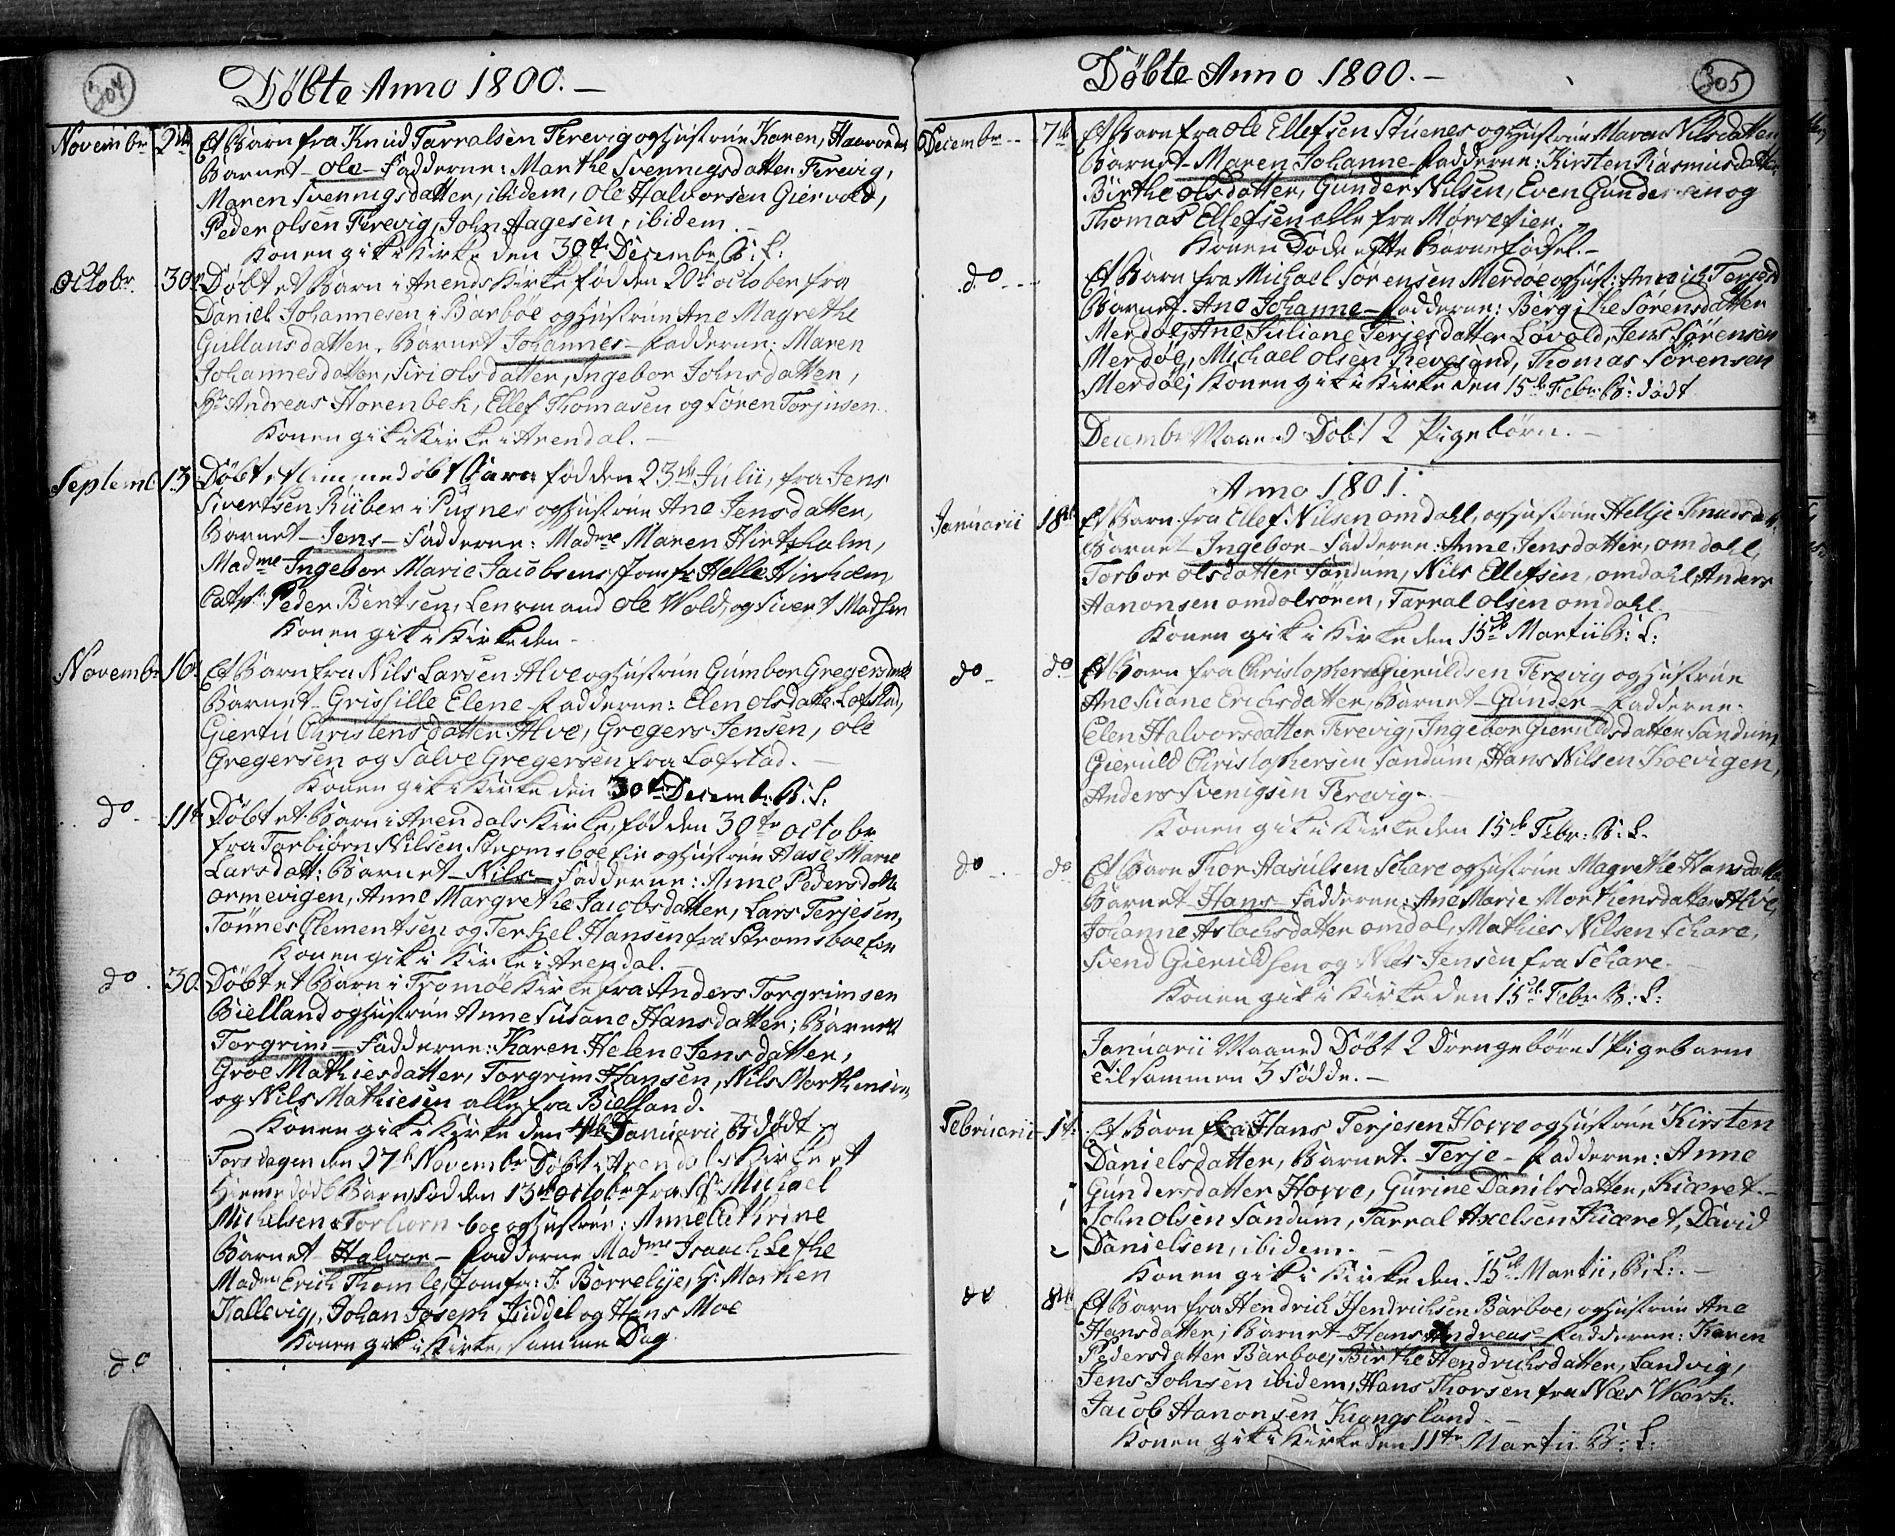 304
Döbte Anno 1800. —
Novembr 2de Et Barn fra Knud Tarralsen Terevig og Hustrüe Karen, Haavorsd
Barnet - Ole - Fadderne: Marthe Svennigsdatter Terevig,
Maren Svennigsdatter, ibidem, Ole Halvorsen Giervold,
Peder Olsen Terevig, John Aagesen, ibidem. —
Konen gik i Kirke den 30te Decembr B: L:
Octobr. 30te Döbt et Barn i Arends Kirke föd den 20de October fra
Daniel Johannesen i Barböe og Hustrüe Ane Magrethe
Gullansdatter. Barnet Johannes - Fadderne: Maren
Johannesdatter, Siri Olsdatter, Ingebor Johnsdatter,
Hr Andreas Horenbek, Ellef Thomasen og Sören Torjusen.
Konen gik i Kirke i Arendal. —
Septemb 13 Döbt et hiemmedöbt Barn föd den 23de Julii, fra Jens
Sivertsen Rüber i Pusnes og Hustrüe Ane Jensdatter,
Barnet - Jens - Fadderne: Madme Maren Hirtzholm,
Madme Ingebor Marie Jacobsens, Jomfr Helle Hirsholm,
Catp: Peder Bentsen, Lensmand Ole Wold, og Sivert Madsen
Konen gik i Kirke den -
Novembr 16de Et Barn fra Nils Larsen Alve og Hustrüe Gümbor Gregersdatt
Barnet - Grissille Elene - Fadderne: Elen Olsdatter Lofstad,
Giertü Christensdatter Alve, Gregers Jensen, Ole
Gregersen og Salve Gregersen fra Lofstad. —
Konen gik i Kirke den 30te Decemb: B: L:
do - 11te Döbt et Barn i Arendals Kirke, föd den 30te Octobr
fra Torbiörn Nilsen Strömsboe Eie og Hustrüe Aase Marie
Larsdatt: Barnet - Nils - Fadderne: Anne Pedersdatter
Ormevigen, Anne Margrethe Jacobsdatter, Lars Terjesen,
Tönnes Clementsen og Terkel Hansen fra Strömsboe Eie
Konen gik i Kirke i Arendal. —
do . 30. Döbt et Barn i Tromöe Kirke fra Anders Torgrimsen
Bielland og Hustrüe Anne Susane Hansdatter; Barnet
Torgrim - Fadderne: Karen Helene Jensdatter,
Groe Mathiesdatter, Torgrim Hansen, Nils Morthensen
og Nils Mathiesen alle fra Bielland.
Konen gik i Kirke den 4de Januarii B dödt -
Torsdagen den 27de Novembr Döbt i Arendals Kirke et
Hiemedöbt Barn, föd den 13de Octobr fra Sr Michael
Michelsen Torbiörnsboe og Hustrüe: Anne Cathrine
Barnet Halvor - Fadderne Madme Isaach Lethe
Madme Erich Thomle, Jomfr: J. Börrelye, H: Morten
Kallevig, Johan Joseph Fiddel og Hans Moe
Konen gik i Kirke, samme Dag.
do
305
Döbte Anno 1800. —
Decembr -- 7de Et Barn fra Ole Ellefsen Stuenes og Hustrüe Maren Nilsdatter
Barnet - Maren Johanne - Fadderne: Kirsten Rasmusdatter
Birthe Olsdatter, Gunder Nilsen, Even Gundersen og
Thomas Ellefsen alle fra Mörrefier.
Konen Döde efter Barnefödsel. —
do - - - Et Barn fra Michael Sörensen Merdöe og Hust: Annich Terjesd
Barnet. Ane Johanne - Fadderne: Bergithe Sörensdatter
Merdöe, Ane Juliane Terjesdatter Lövold, Jens Sörensen
Merdöe, Michael Olsen Revesand, Thomas Sörensen
Merdöe; Konen gik i Kirke den 15de Febr: B: dödt
Decembr Maaned Döbt 2 Pigebörn. —
Anno 1801.
Januarii 18de Et Barn fra Ellef Nilsen Omdahl, og Hustrüe Hellje Knudsdatt,
Barnet - Ingebor - Fadderne: Anne Jensdatter, Omdahl,
Torbor Olsdatter Sandum, Nils Ellefsen, Omdahl, Anders
Aanonsen Omdalsören, Tarral Olsen Omdahl.
Konen gik i Kirke den 15de Martii B: L:
do - do Et Barn fra Christopher Gieruldsen Terevig og Hustrüe
Ane Susane Erichsdatter, Barnet - Gunder - Fadderne.
Elen Halvorsdatter Terevig, Ingebor Gieruldsdatter Sandum,
Gieruld Christophersen Sandum, Hans Nilsen Hoevigen,
Anders Svenigsen Terevig. -
Konen gik i Kirke den 15de Febr: B: L.
do - . do Et Barn Thor Aasulsen Schare og Hustrüe Magrethe Hansdatter
Barnet Hans - Fadderne: Ane Marie Morthensdatter Alve,
Johanne Aslachsdatter Omdal, Mathies Nilsen Schare,
Svend Gieruldsen og Nils Jensen fra Schare.
Konen gik i Kirke den 15de Febr B: L:
Januarii Maaned Döbt 2 Drengebörn 1 Pigebarn
Tilsammen 3 Födde. —
Februarii - 1te. Et Barn fra Hans Terjesen Hovve og Hustrüe Kirsten
Danielsdatter, Barnet. - Terje - Fadderne: Anne
Gundersdatter Hovve, Gurine Danilsdatter, Kiæret. -
John Olsen Sandum, Tarral Axelsen Kiæret, David
Danielsen, ibidem. —
Konen gik i Kirke den 15de Martii, B: L:. —
do 8de Et Barn fra Hendrich Hendrichsen Barboe, og Hustrüe Ane
Hansdatter; Barnet - Hans Andreas - Fadderne: Karen
Pedersdatter Barboe, Birthe Hendrichsdatter, Sandvig,
Jens Johnsen ibidem, Hans Thorsen fra Næs Værk.
Jacob Aanonsen Kongsland. -
Konen gik i Kirke den 11te Martii B: L: